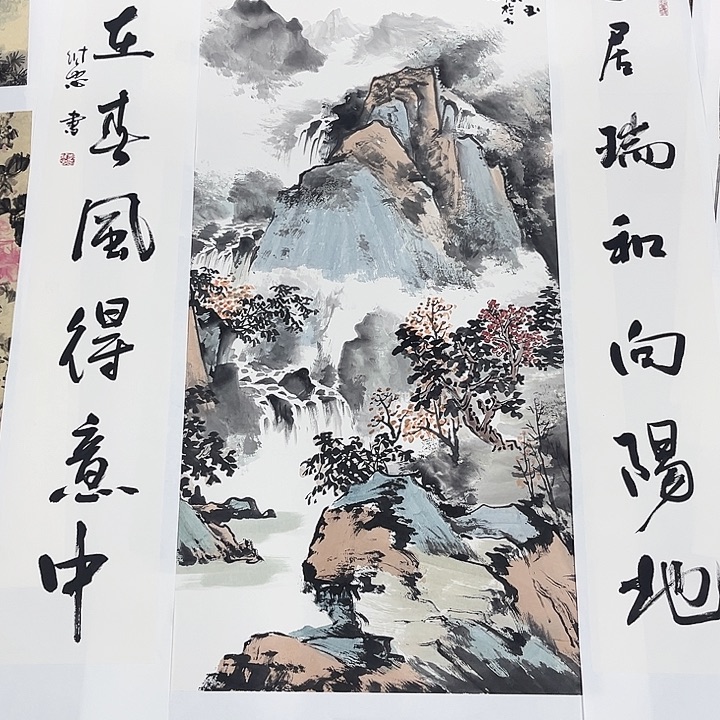 居瑞和向陽地
在春風得意中
書